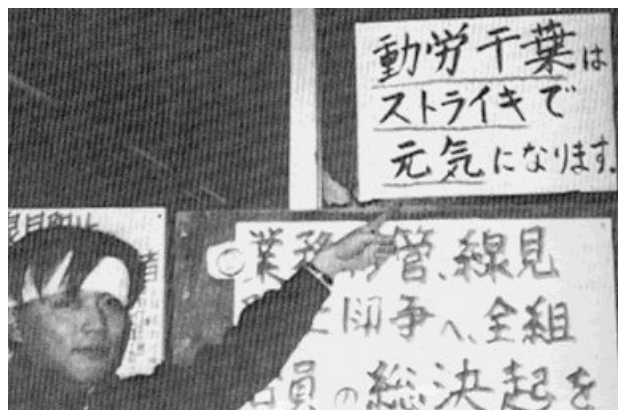 動労千葉は
ストライキで
元気になります。
業務移管、線見
阻止闘争へ、全組
合員の総決起を